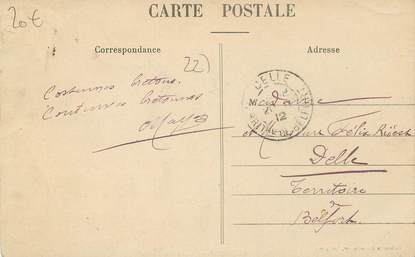 20€
CARTE POSTALE
Correspondance
Adresse
22)
Costumes bretons.
Coutumes bretonnes
DELLE
12
Madame
et Félix
Delle
Territoire
de
Belfort